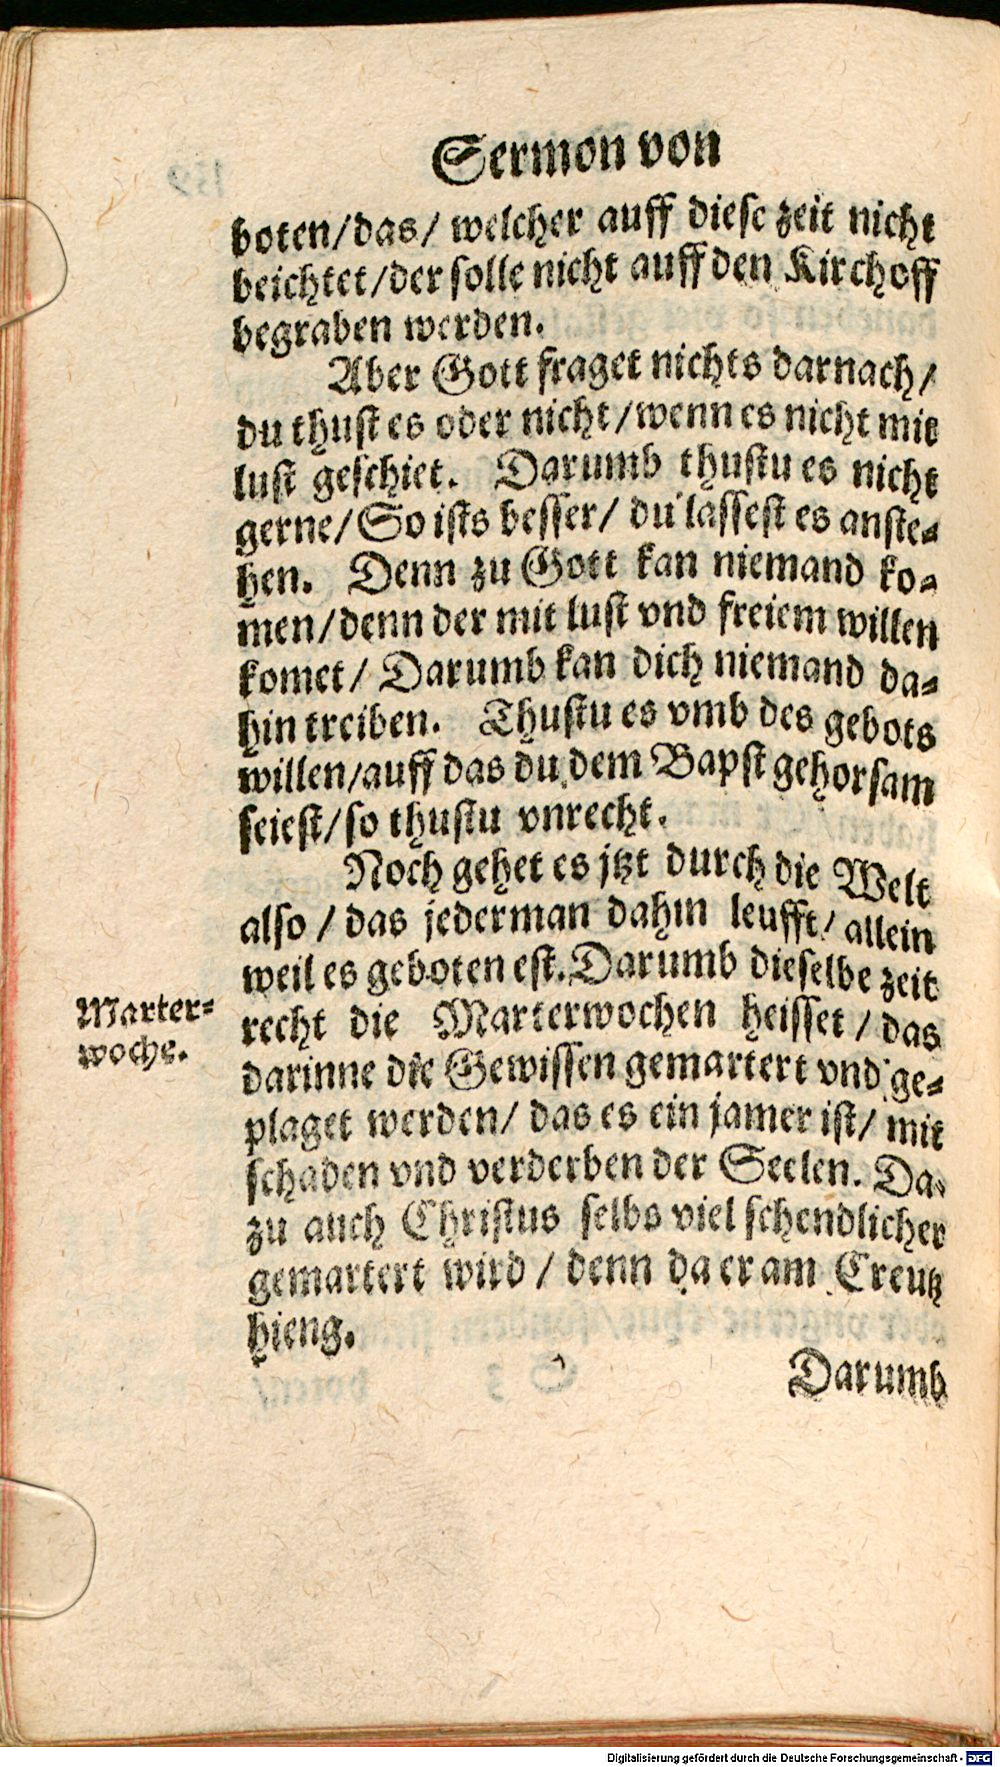 Sermon von
boten/das/ welcher auff diese zeit nicht
beichtet/der solle nicht auff den Kirchoff
begraben werden.
Aber Gott fraget nichts darnach/
du thust es oder nicht/wenn es nicht mit
lust geschiet. Darumb thustu es nicht
gerne/So ists besser/ du lassest es anste⸗
hen. Denn zu Gott kan niemand ko⸗
men/denn der mit lust vnd freiem willen
komet/ Darumb kan dich niemand da⸗
hin treiben. Thustu es vmb des gebots
willen/auff das du dem Bapst gehorsam
seiest/so thustu vnrecht.
Noch gehet es jtzt durch die Welt
also / das jederman dahin leufft/ allein
weil es geboten est. Darumb dieselbe zeit
Marter⸗
woche.
recht die Marterwochen heisset / das
darinne die Gewissen gemartert vnd ge⸗
plaget werden/ das es ein jamer ist/ mit
schaden vnd verderben der Seelen. Da⸗
zu auch Christus selbs viel schendlicher
gemartert wird / denn da er am Creutz
hieng.
Darumb
Digitalisierung gefördert durch die Deutsche Forschungsgemeinschaft - DFG